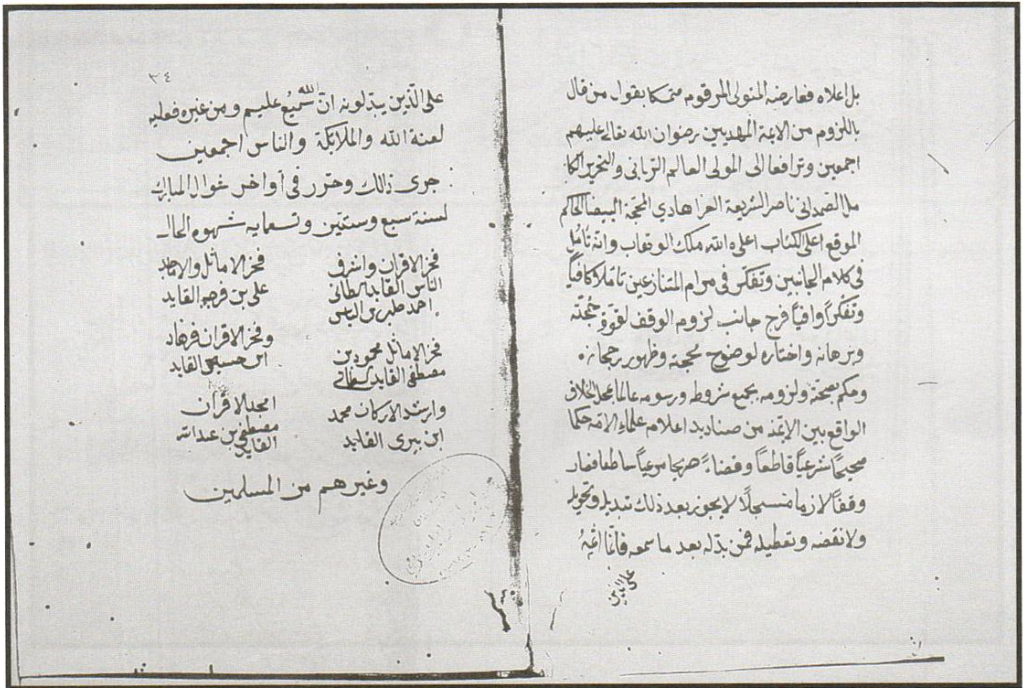 بل اعلاه فعارضه المتولى المرقوم متمسكا بقول من قال
باللزوم من الايمة المهديين رضوان الله تعالى عليهم
اجمعين وترافعا الى المولى العالم الربانى والنحرير الكا
مل الصمدانى ناصر الشريعة الغرا هادى المحجة البيضا الحاكم
الموقع اعلى الكتاب اعلاه الله ملك الوهاب وانه تائل
فى كلام الجانبين وتفكر فى مرام المتنازعين تاملا كافياً
وتفكراً وافياً فرج جانب لزوم الوقف لقوة حجته
وبرهانه واختاره لوضوح محجته وظهور رجحانه
وحكم بصحته ولزومه بجميع شروطه ورسومه عالما بمحل الخلاف
الواقع بين الايمة من صناديد اعلام علماء الامة حكما
صحيحاً شرعياً قاطعاً وقضاءً صريحا مرعياً ساطعا فصار
وقفاً لازما مسجلاً لا يجوز بعد ذلك تبديله وتحويله
ولا نقضه وتعطيله فمن بدله بعد ما سمعه فانما اثمهُ
على الذين
٣٤
على الذين يبدلونه ان الله سميع عليم ومن غيره فعليه
لعنة الله والملايكة والناس اجمعين
جرى ذلك وحرر فى أواخر شوال المبارك
لسنة سبع وستين وتسعمايه شهود الحال
فخر الاقران واشرف
الناس القايد
احمد بن الياس
فخر الاماثل والاماجد
على بن فرج القايد
فخر الاماثل محمود بن
مصطفى القايد
وفخر الاقران فرهاد
ابن حسين القايد
وارشد الاركان محمد
ابن بيرى القايد
امجد الاقران
مصطفى بن عبد الله
القايد
وغيرهم من المسلمين